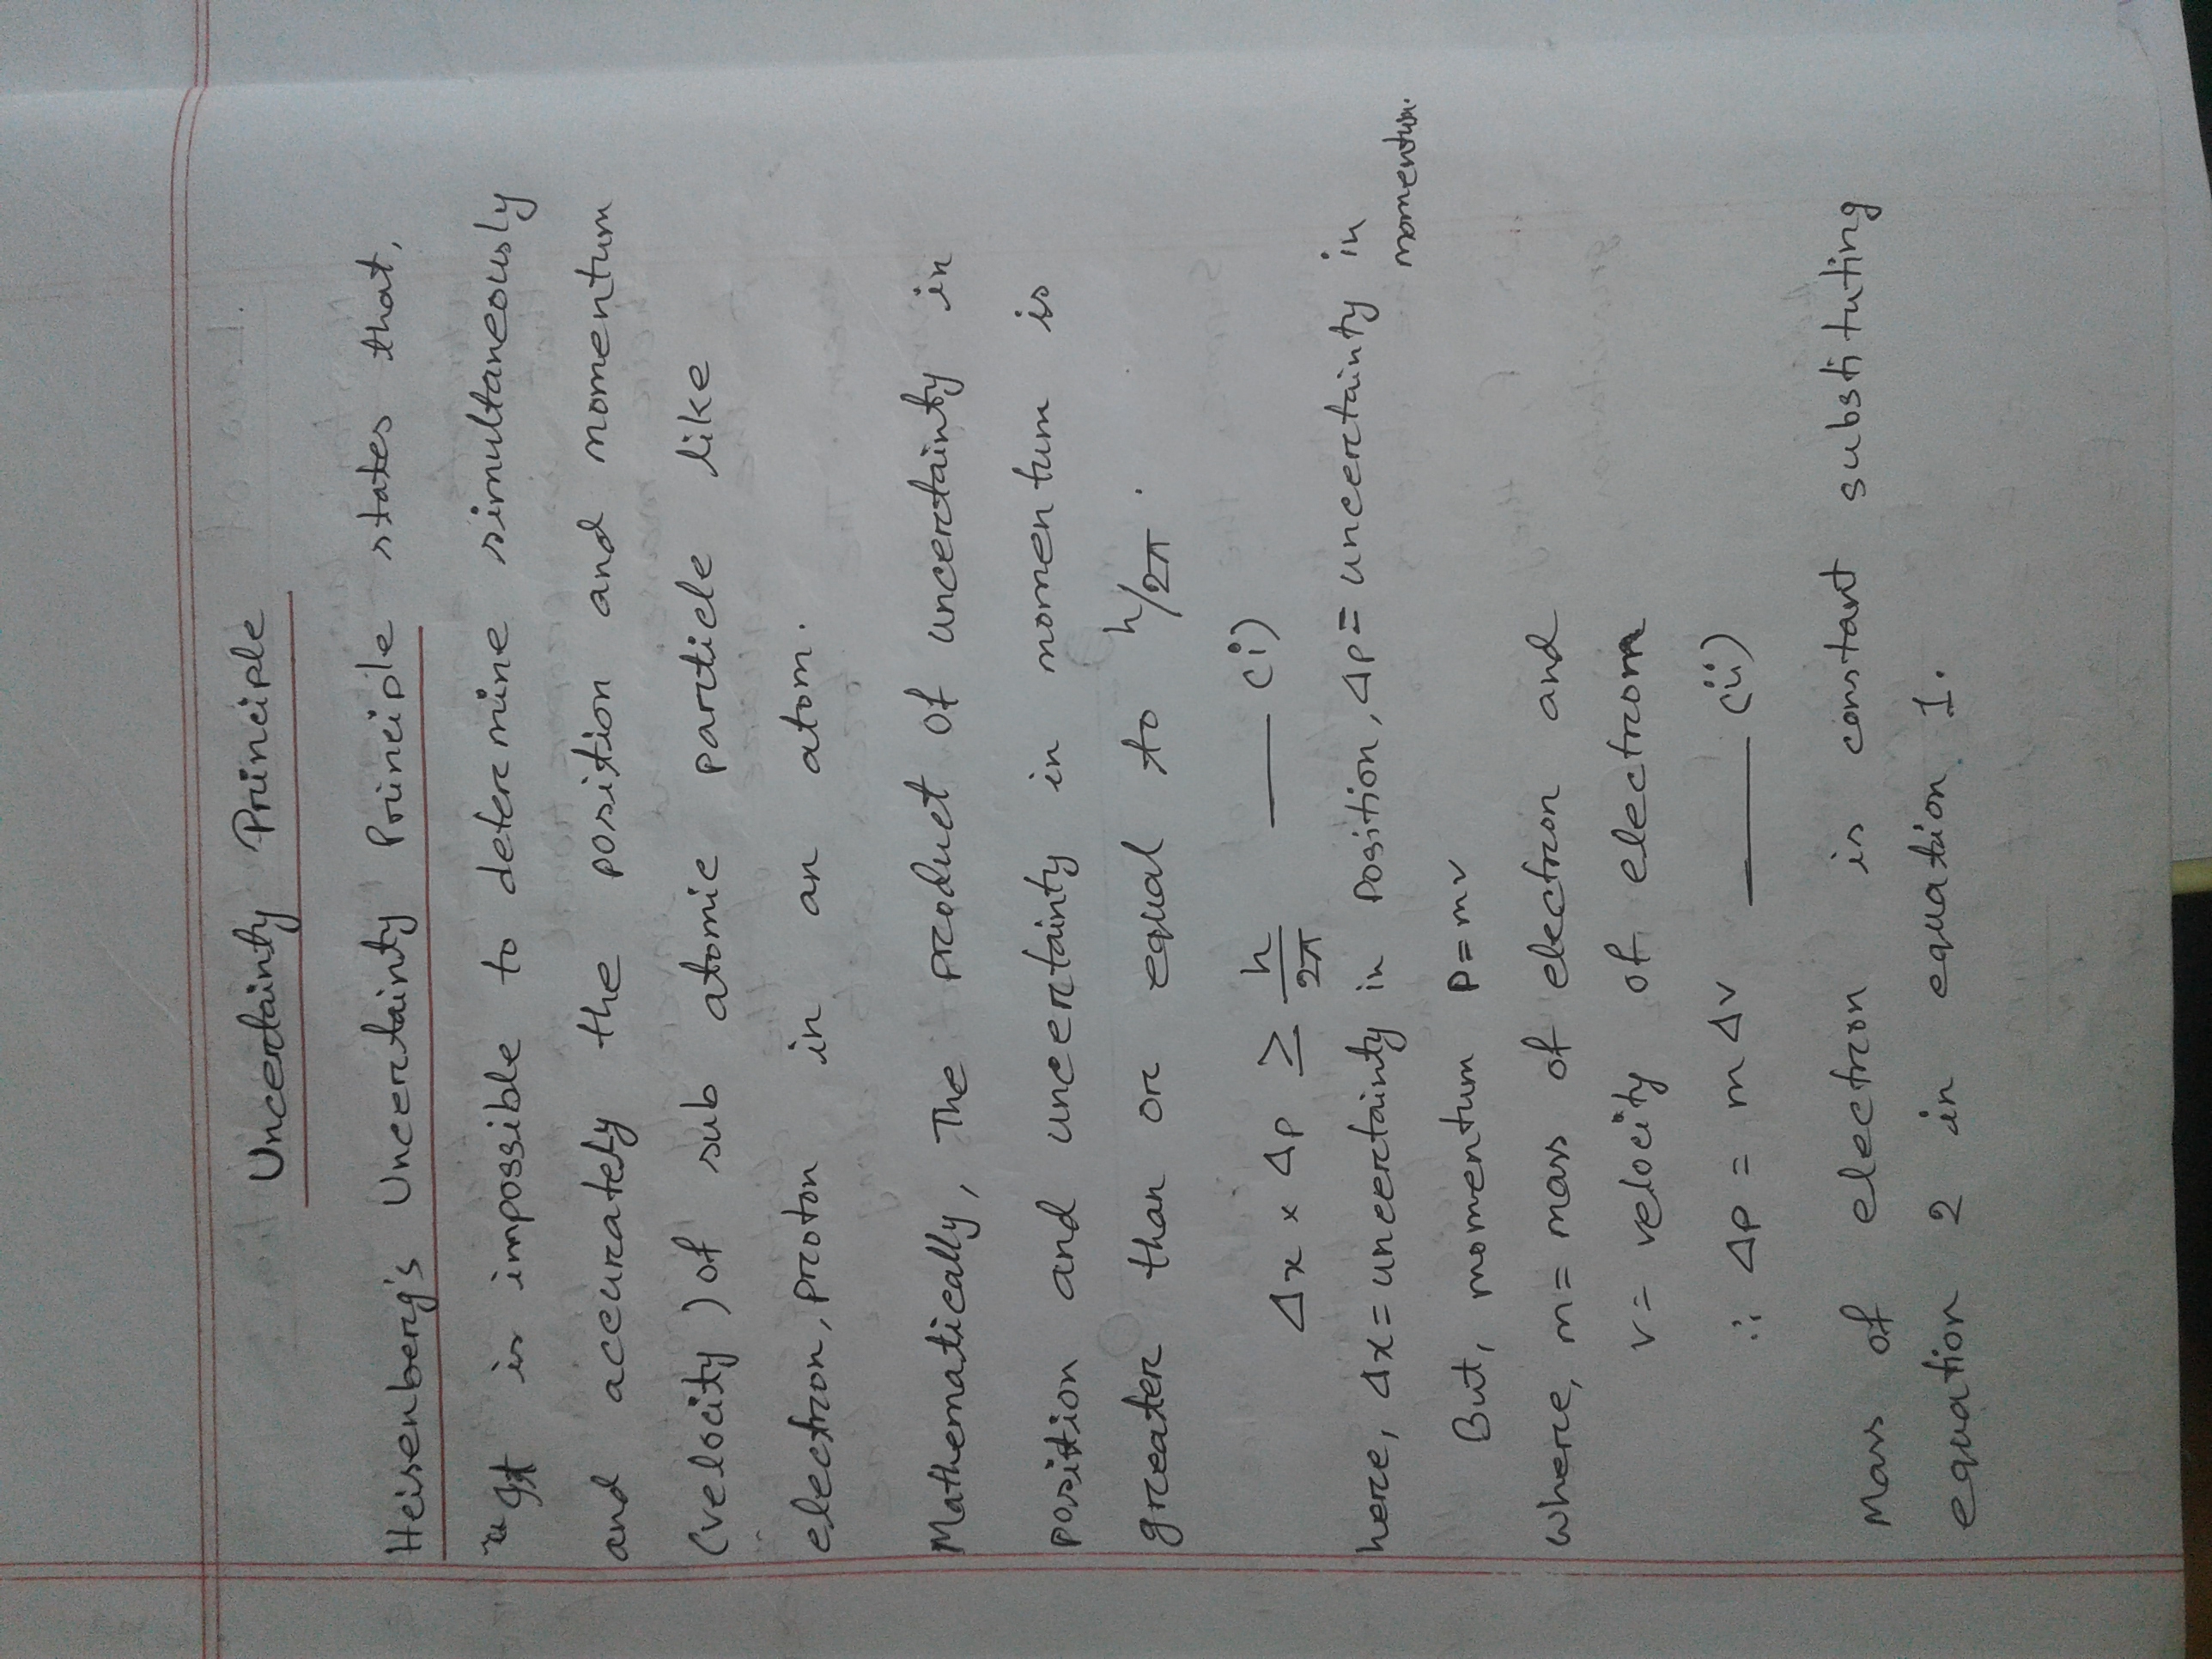 Uncertainty Principle
Heisenberg's Uncertainty Principle states that,
"It is impossible to determine simultaneously
and accurately the position and momentum
(velocity) of sub atomic particle like
electron, proton in an atom.
Mathematically, The product of uncertainty in
position and uncertainty in momentum is
greater than or equal to h/2π.
Δx × Δp ≥ h/2π —— (i)
here, Δx = uncertainty in Position, Δp = uncertainty in
momentum.
But, momentum P = mv
where, m = mass of electron and
v = velocity of electron
∴ Δp = m Δv —— (ii)
Mass of electron is constant substituting
equation 2 in equation 1.